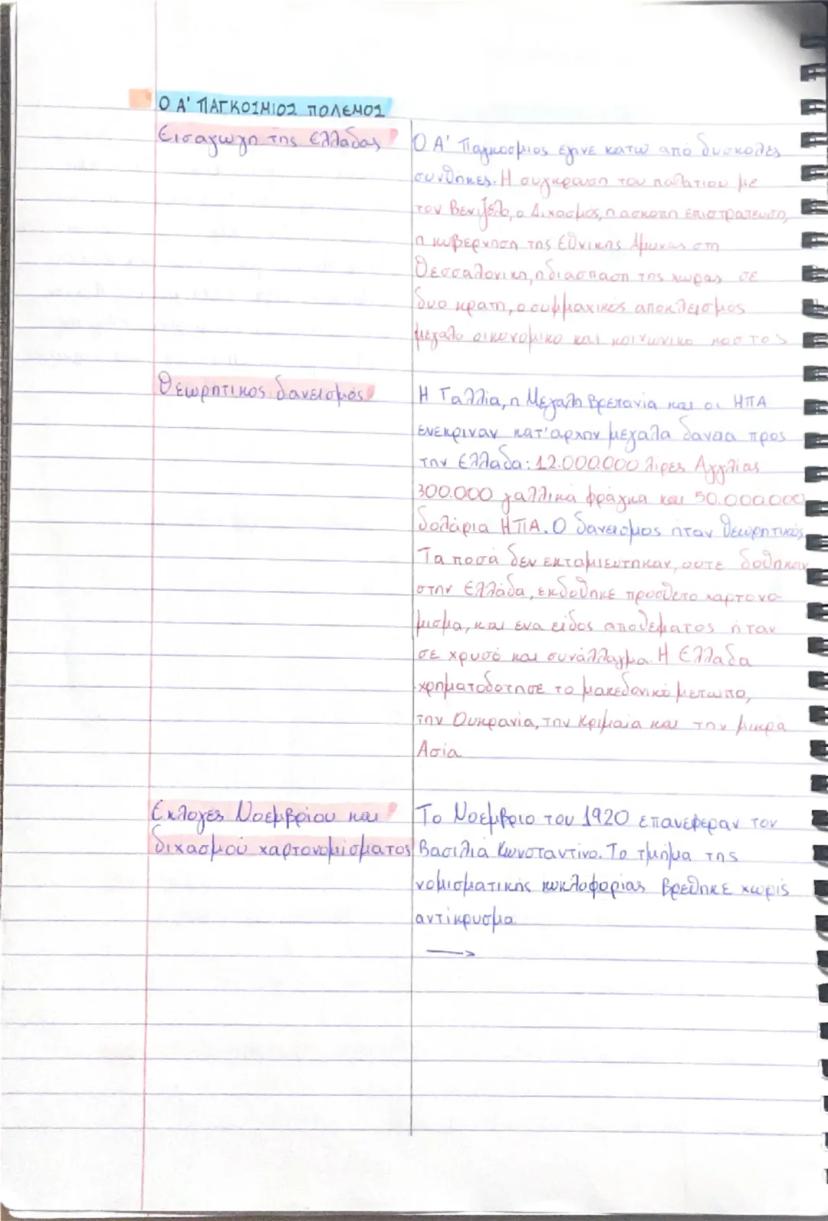 Ο Α' ΠΑΓΚΟΣΜΙΟΣ ΠΟΛΕΜΟΣ
Εισαγωγη της Ελλαδας
Ο Α' Παγκοσμιος εγινε κατω απο δυσκολες
συνθηκες. Η συγκρουση του παλατιου με
τον Βενιζελο, ο Διχασμος, η ασκοπη επιστρατευση,
η κυβερνηση της Εθνικης Αμυνας στη
Θεσσαλονικη, η διασπαση της χωρας σε
δυο κρατη, ο συμμαχικος αποκλεισμος
μεγαλο οικονομικο και κοινωνικο κοστος
Θεωρητικος δανεισμός
Η Γαλλια, η Μεγαλη Βρετανια και οι ΗΠΑ
ενεκριναν κατ' αρχην μεγαλα δανεια προς
την Ελλαδα: 12.000.000 λιρες Αγγλιας
300.000 γαλλικά φράγκα και 50.000.000
δολάρια ΗΠΑ. Ο δανεισμος ηταν θεωρητικός
Τα ποσά δεν εκταμιευτηκαν, ουτε δοθηκαν
στην Ελλάδα, εκδοθηκε προσθετο χαρτονο-
μισμα, και ενα είδος αποθεματος ηταν
σε χρυσό και συνάλλαγμα. Η Ελλαδα
χρηματοδοτησε το μακεδονικο μετωπο,
την Ουκρανια, την Κριμαια και την μικρα
Ασία
Εκλογες Νοεμβρίου και
διχασμού χαρτονομίσματος
Το Νοεμβριο του 1920 επανεφεραν τον
Βασιλιά Κωνσταντινο. Το τμημα της
νομισματικής κυκλοφορίας βρεθηκε χωρίς
αντίκρυσμα
→